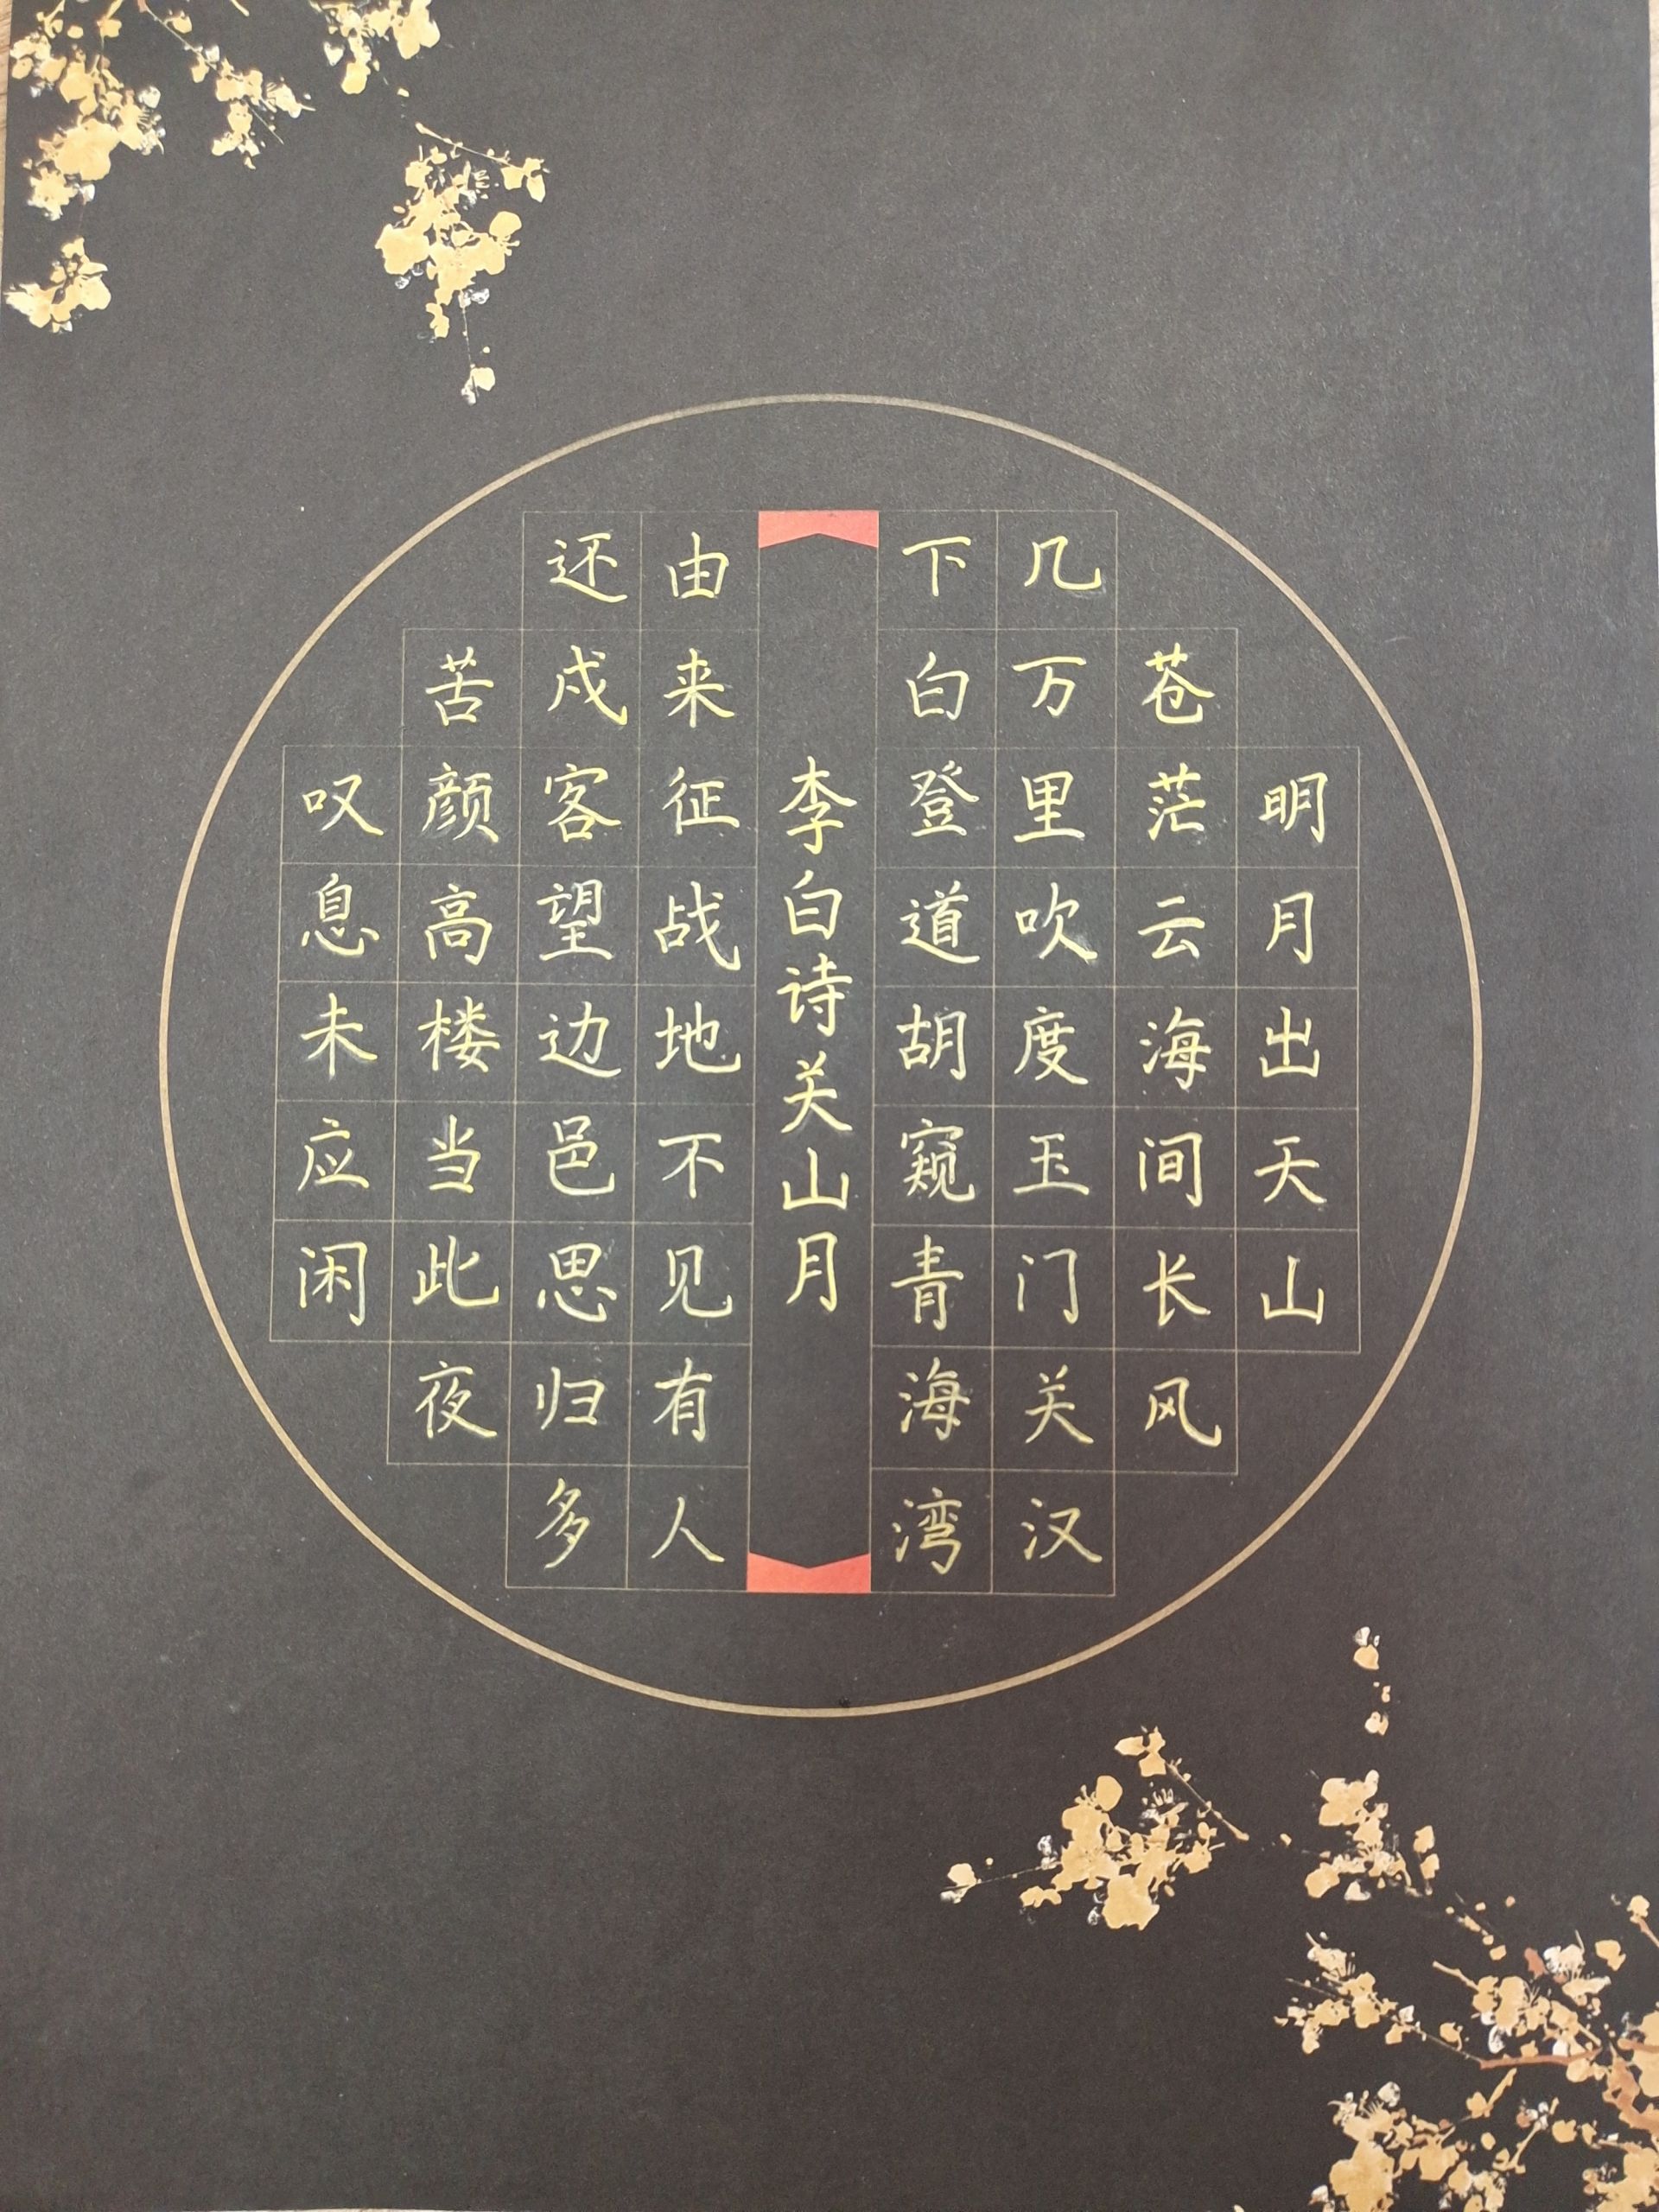 明月出天山
苍茫云海间长风
几万里吹度玉门关汉
下白登道胡窥青海湾
李白诗关山月
由来征战地不见有人
还戍客望边邑思归多
苦颜高楼当此夜
叹息未应闲